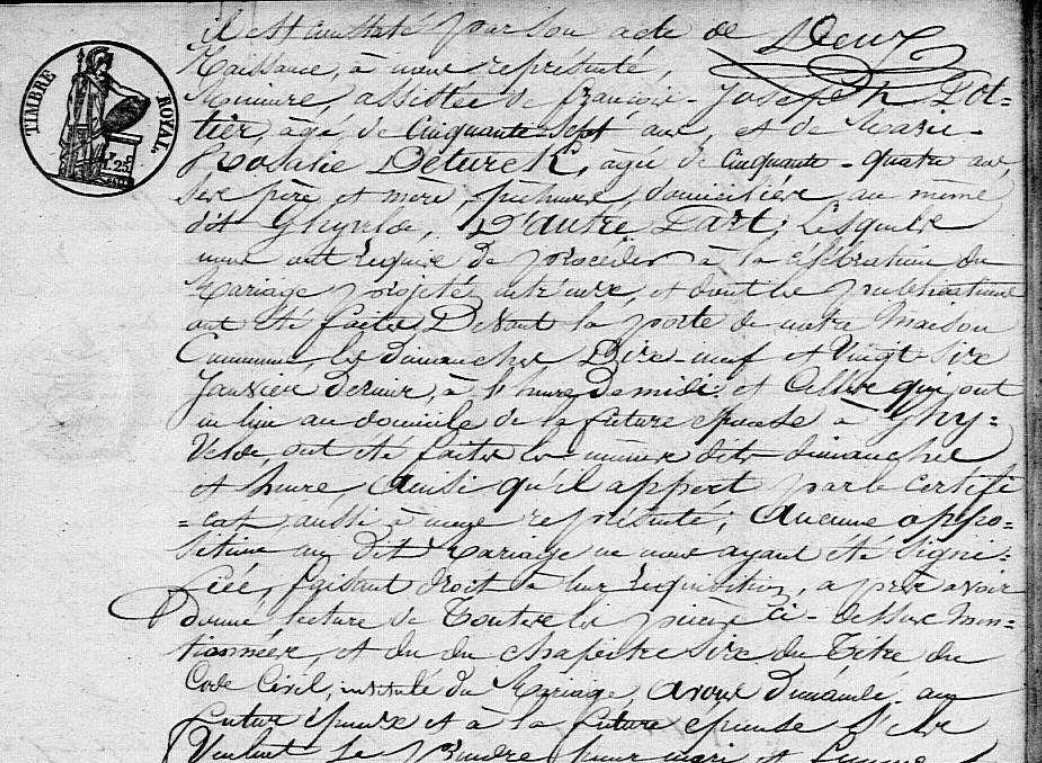 TIMBRE ROYAL.
25
il est constaté par son acte de Deux
Naissance, à nous représenté,
Mineure, assistée de françois-Joseph Pot=
tier, âgé de Cinquante-sept ans, et de Marie-
Rosalie Deturck, âgée de Cinquante-quatre ans,
ses père et mère, domiciliés au même
dit Ghyvelde, D'autre Part; Lesquels
nous ont requis de procéder à la célébration du
Mariage projeté entr'eux, et dont les publications
ont été faites Devant la porte de notre Maison
Commune, les dimanches Dix-neuf et Vingt-six
Janvier dernier, à l'heure de midi: et Celles qui ont
eu lieu au domicile de la future épouse à Ghy=
velde, ont été faites les mêmes dits dimanches
et heure, Ainsi qu'il appert par le certifi
=cat, aussi à nous représenté; Aucune oppo=
sition au dit Mariage ne nous ayant été signi=
fiée, faisant droit à leur réquisition, après avoir
donné lecture de Toutes les pièces ci-dessus Men=
tionnées, et du chapitre six du Titre du
Code Civil, intitulé du Mariage, avons demandé au
futur époux et à la future épouse s'ils
Veulent se prendre pour mari et femme